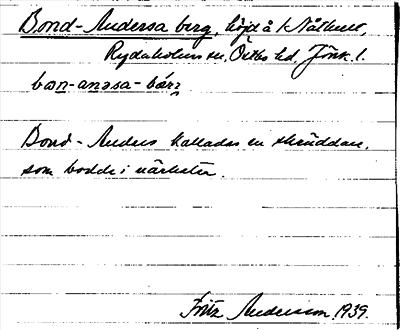 Bond-Andersa berg, höjd å Nåthult,
Rydaholms sn, Östbo hd, Jönk. l.
bon-anəsa-bärz
Bond-Anders kallades en skräddare,
som bodde i närheten.
Fritz Andersson, 1939.